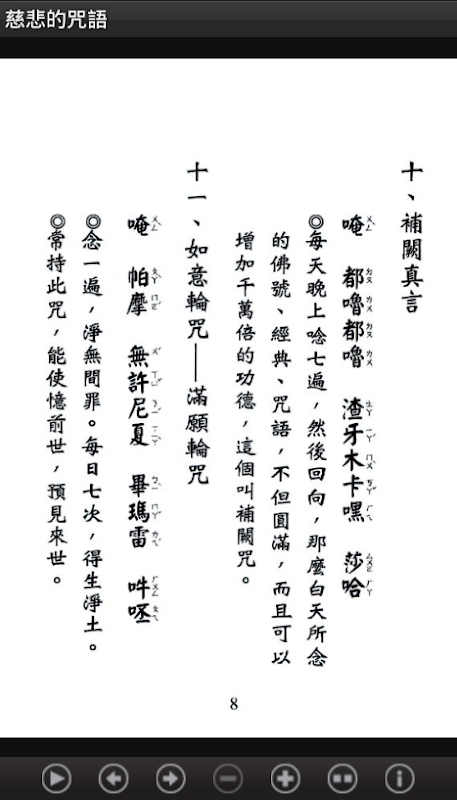 慈悲的咒語
十、補闕真言
唵 都嚕都嚕 渣牙木卡嘿 莎哈
◎每天晚上唸七遍，然後回向，那麼白天所念
的佛號、經典、咒語，不但圓滿，而且可以
增加千萬倍的功德，這個叫補闕咒。
十一、如意輪咒——滿願輪咒
唵 帕摩 無許尼夏 畢瑪雷 吽呸
◎念一遍，淨無間罪。每日七次，得生淨土。
◎常持此咒，能使憶前世，預見來世。
8